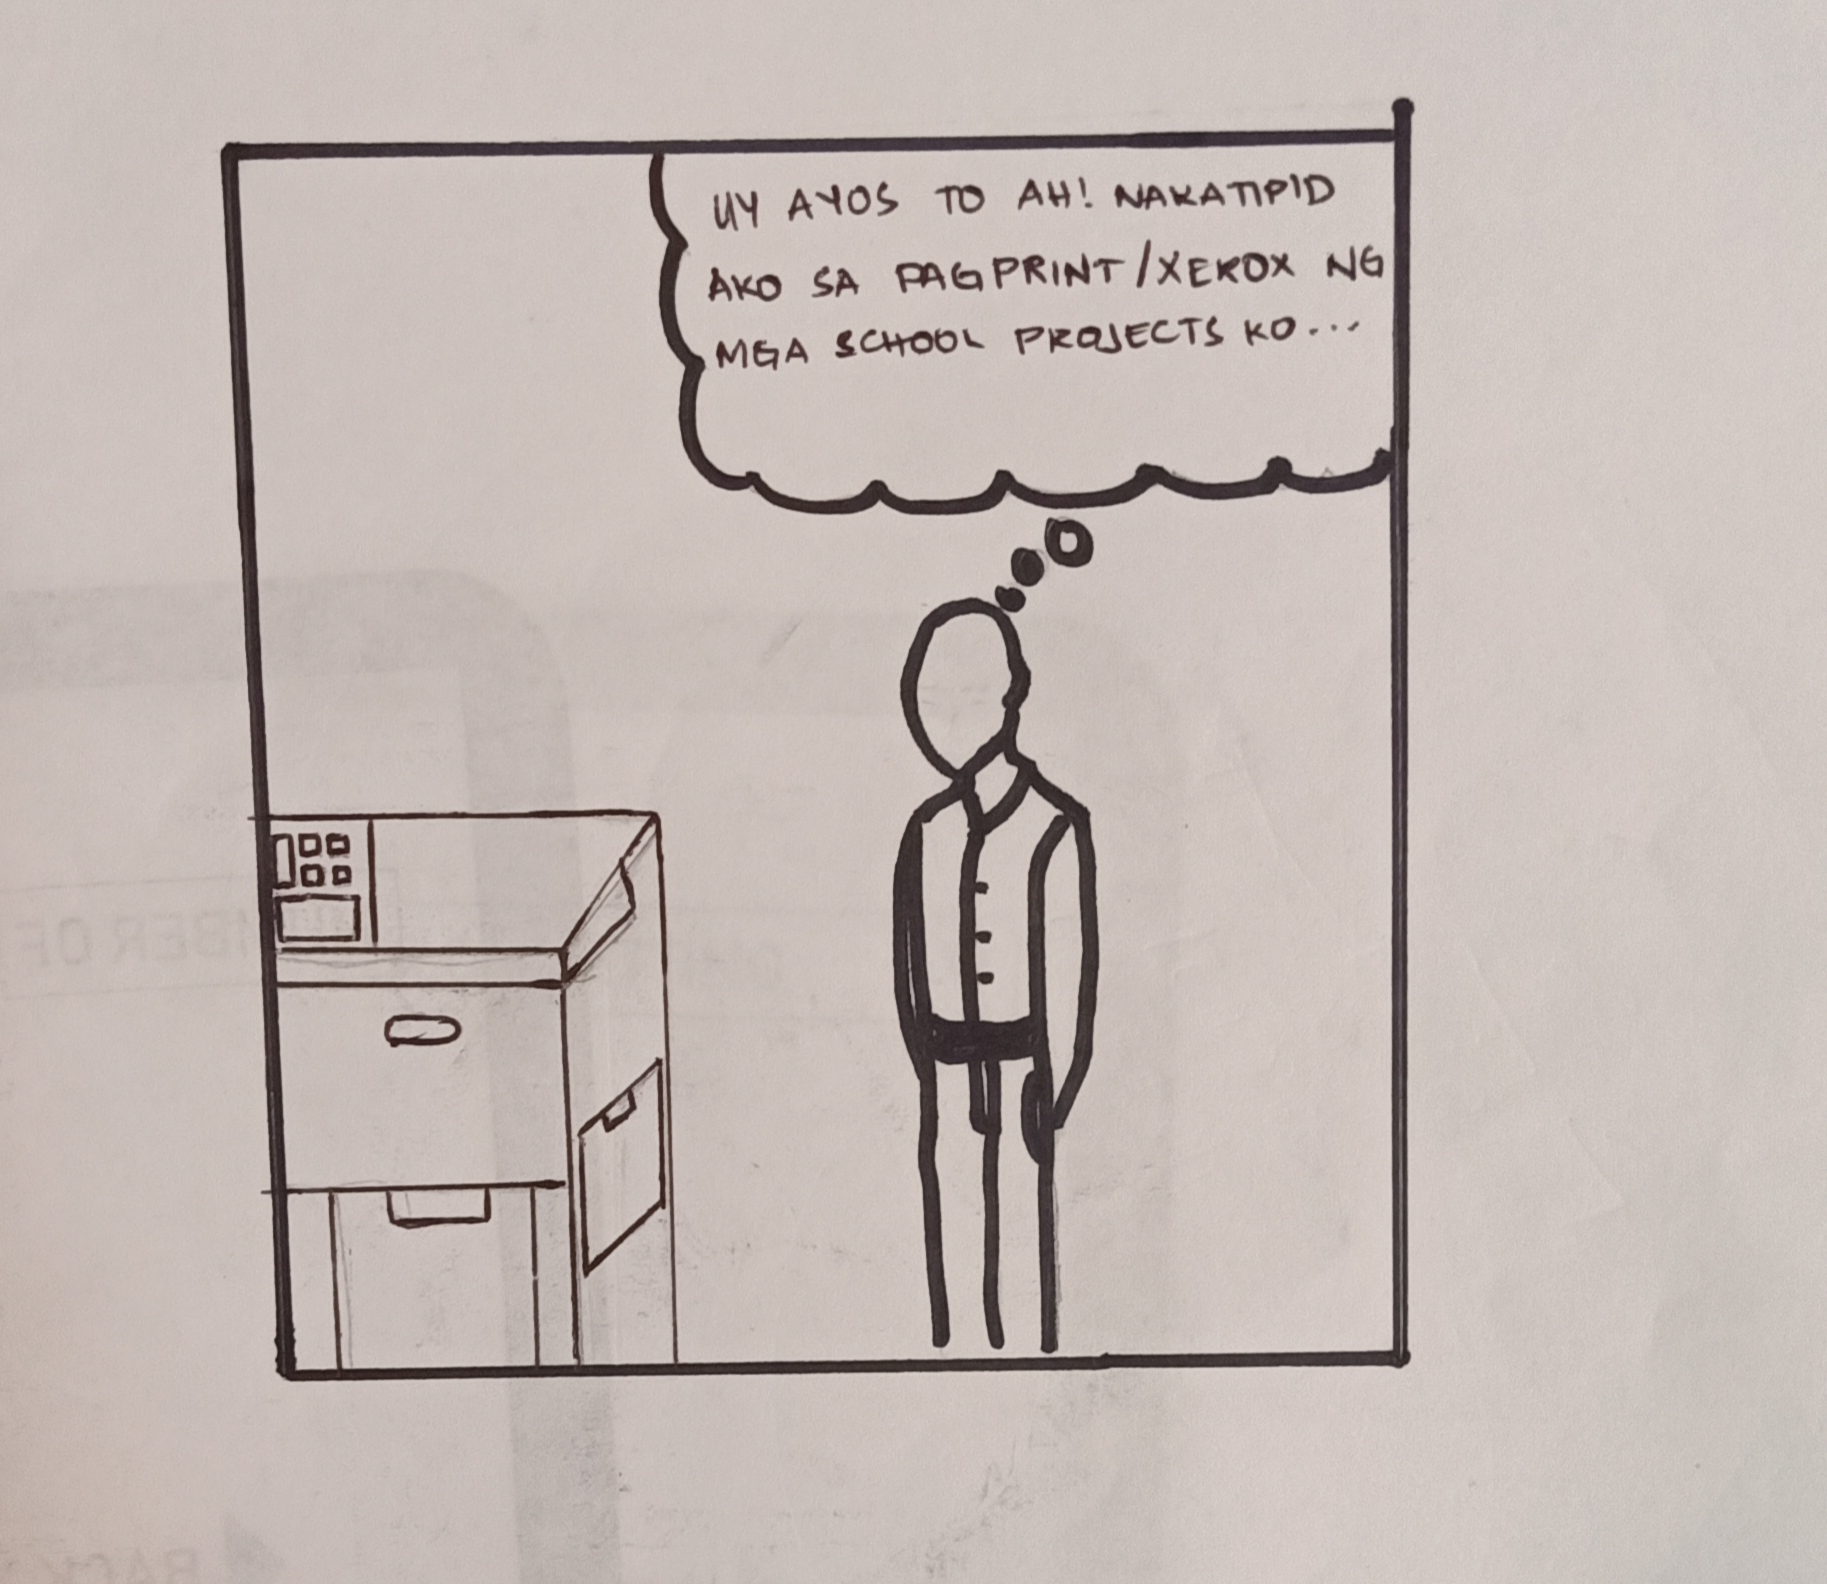 UY AYOS TO AH! NAKATIPID
AKO SA PAGPRINT/XEROX NG
MGA SCHOOL PROJECTS KO...
BER OF
BACK